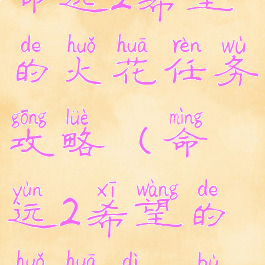 命运2希望
de huǒ huā rèn wù
的火花任务
gōng lüè mìng
攻略（命
yùn xī wàng de
运2希望的
huǒ huā dì bù